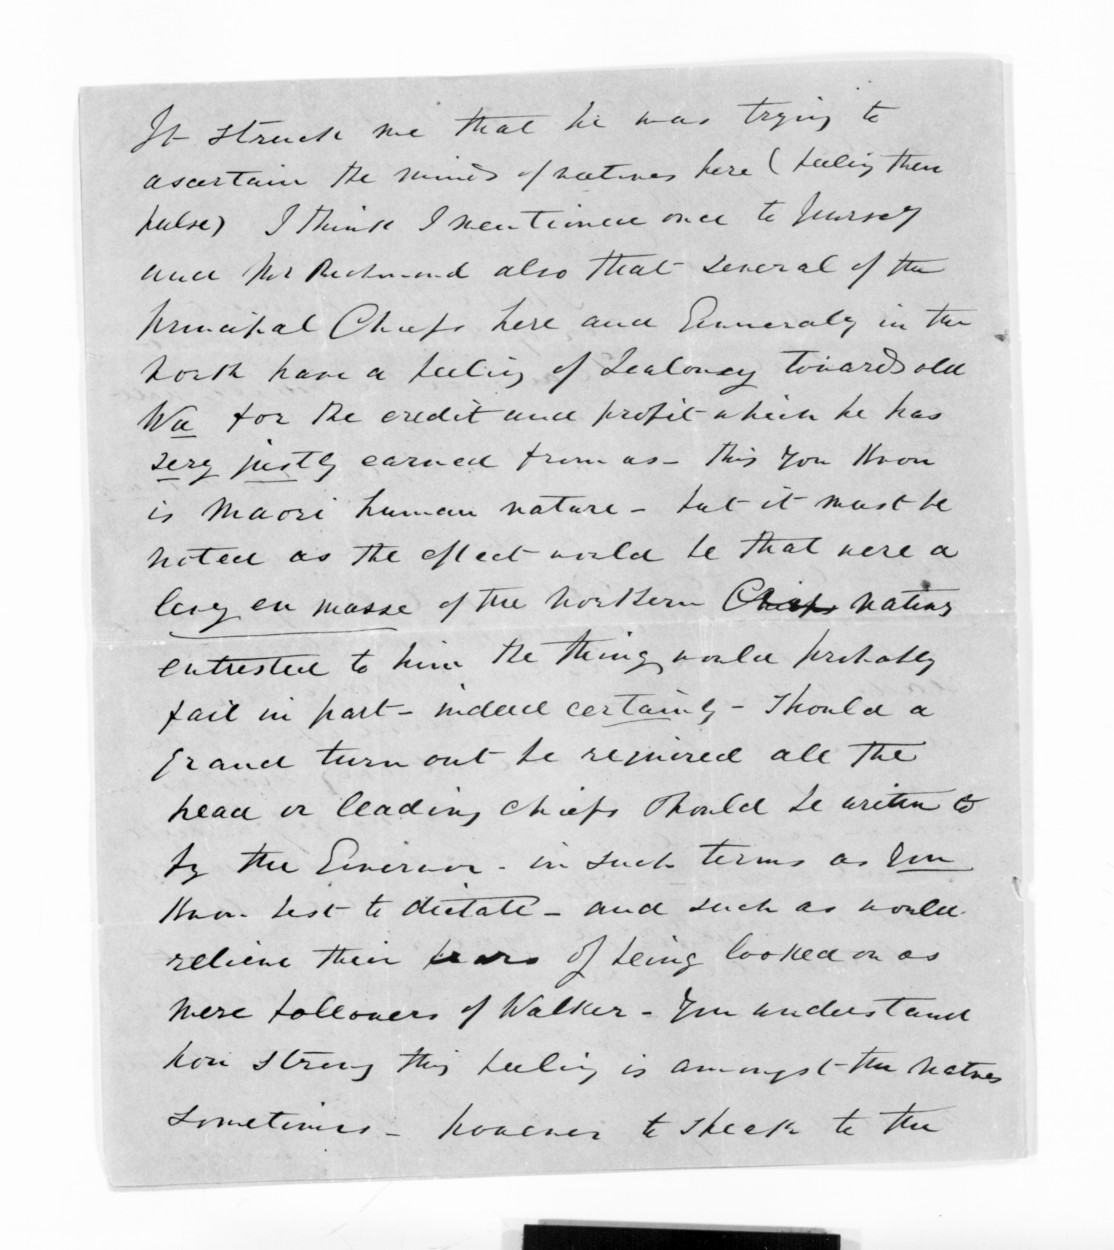 It struck me that he was trying to
ascertain the minds of natives here (feeling their
pulse) I think I mentioned once to
and Mr Richmond also that several of the
principal Chiefs here and Generaly in the
North have a feeling of Jealousy towards old
Wa for the credit and profit which he has
very justly earned from us - this you Know
is Maori human nature - but it must be
noted as the effect would be that were a
levy en masse of the Northern Chiefs natives
entrusted to him the thing would probably
fail in part - indeed certainly - Should a
grand turn out be required all the
head or leading chiefs should be writen to
by the Governor - in such terms as you
Know best to dictate - and such as would
relieve their fears of being looked on as
mere followers of Walker - You understand
how strong this feeling is amongst the natives
sometimes - however to speak to the